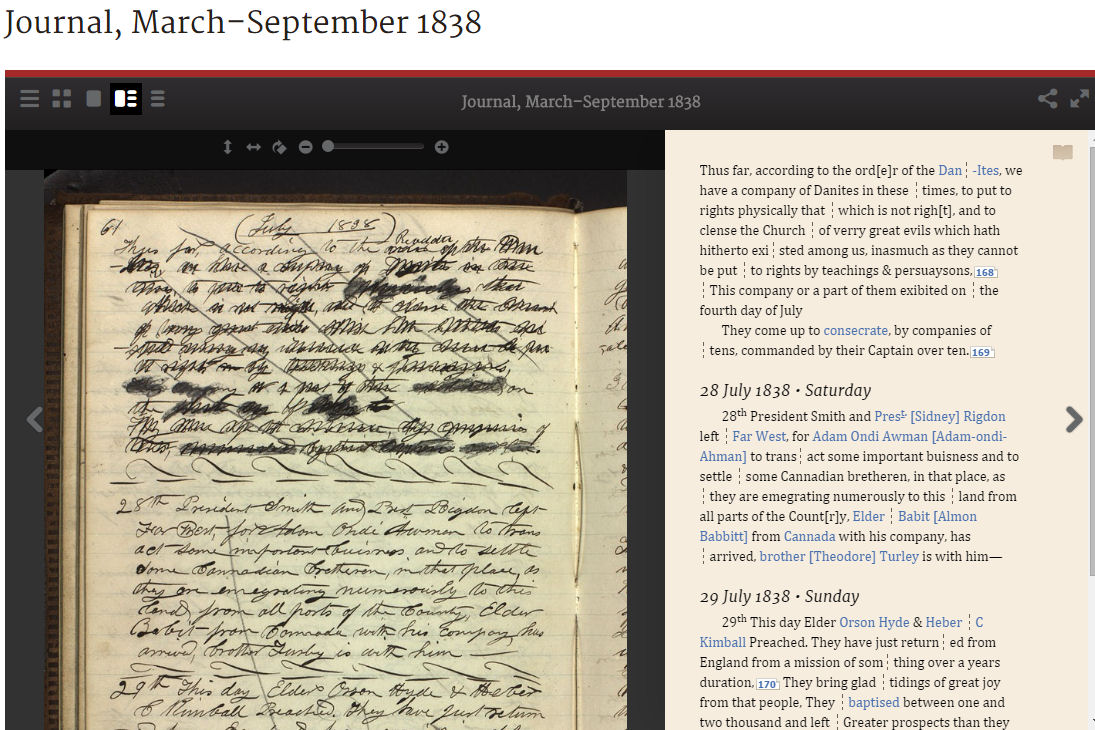 Journal, March–September 1838
Journal, March–September 1838
61 (July 1838)
Thus far, according to the of the Dan
we have a company of in these
to put to rights that
which is not and to clense the Church
of verry great evils which hath hitherto
inasmuch as they cannot be put
to rights by teachings & persuaysons,
or a part of them on
the day of
They come up to consecrate, by companies of
tens, commanded by their Captain over ten.
28th President Smith and Prest Rigdon left
Far West, for Adam Ondi Awman to trans
act some important buisness and to settle
some Cannadian bretheren, in that place, as
they are emegrating numerously to this
land from all parts of the County, Elder
Babit from Cannada with his company, has
arrived, brother Turley is with him —
29th This day Elder Orson Hyde & Heber
C Kimball Preached. They have just return
Thus far, according to the ord[e]r of the Dan ¦ -Ites, we
have a company of Danites in these ¦ times, to put to
rights physically that ¦ which is not righ[t], and to
clense the Church ¦ of verry great evils which hath
hitherto exi ¦ sted among us, inasmuch as they cannot
be put ¦ to rights by teachings & persuaysons, 168
¦ This company or a part of them exibited on ¦ the
fourth day of July
They come up to consecrate, by companies of
¦ tens, commanded by their Captain over ten. 169
28 July 1838 • Saturday
28th President Smith and Prest. [Sidney] Rigdon
left ¦ Far West, for Adam Ondi Awman [Adam-ondi-
Ahman] to trans ¦ act some important buisness and to
settle ¦ some Cannadian bretheren, in that place, as
¦ they are emegrating numerously to this ¦ land from
all parts of the Count[r]y, Elder ¦ Babit [Almon
Babbitt] from Cannada with his company, has
¦ arrived, brother [Theodore] Turley is with him—
29 July 1838 • Sunday
29th This day Elder Orson Hyde & Heber ¦ C
Kimball Preached. They have just return ¦ ed from
England from a mission of som ¦ thing over a years
duration, 170 They bring glad ¦ tidings of great joy
from that people, They ¦ baptised between one and
two thousand and left ¦ Greater prospects than they